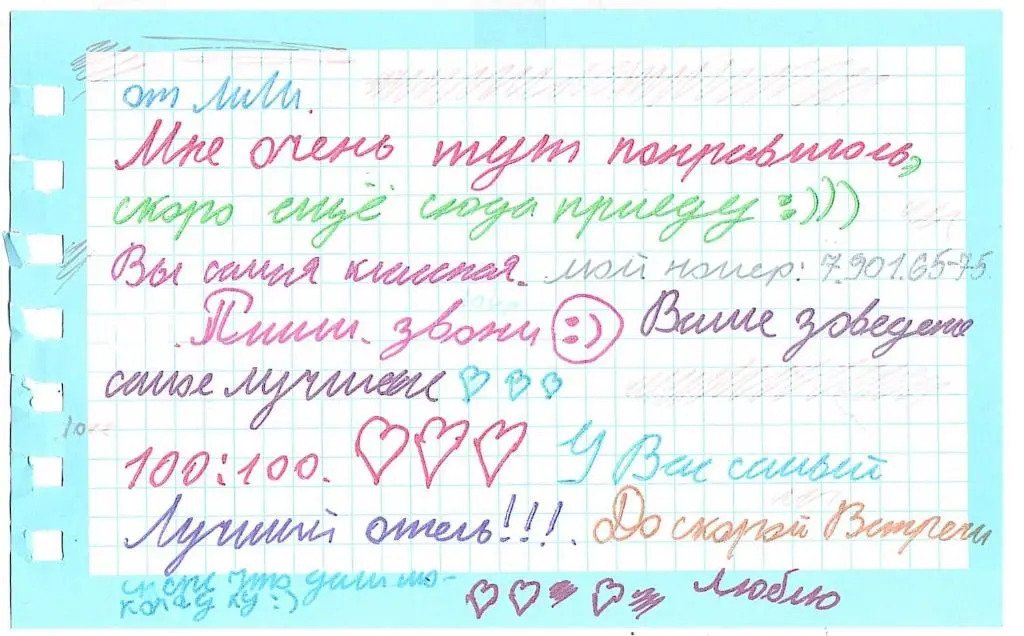 от Лили.
Мне очень тут понравилось,
скоро ещё сюда приеду :)))
Вы самая классная. мой номер: 7.901.65-75.
Пиши. звони :) Ваше заведение
самое лучшее
100:100. У Вас самый
Лучший отель!!! До скорой Встречи
что дали
:) Люблю